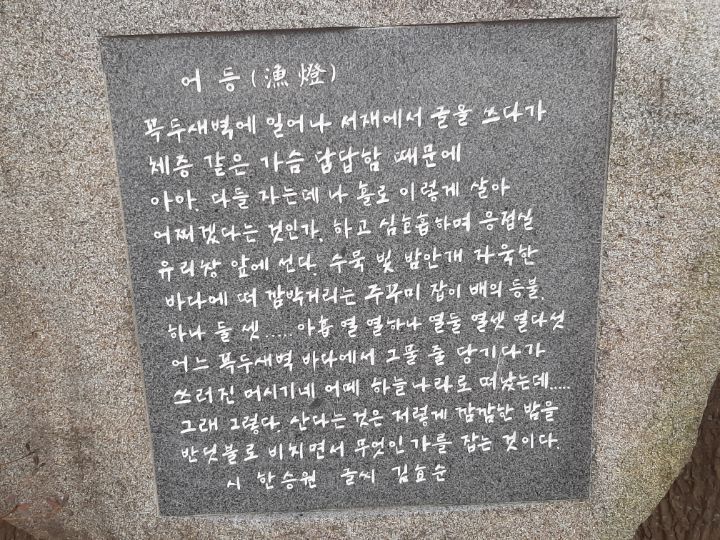 어 등 (漁燈)
꼭두새벽에 일어나 서재에서 글을 쓰다가
체증 같은 가슴 답답함 때문에
아아, 다들 자는데 나 홀로 이렇게 살아
어찌겠다는 것인가, 하고 심호흡하며 응접실
유리창 앞에 선다. 수묵 빛 밤안개 자욱한
바다에 떠 깜박거리는 주꾸미 잡이 배의 등불,
하나 둘 셋.....아홉 열 열하나 열둘 열셋 열다섯
어느 꼭두새벽 바다에서 그물 줄 당기다가
쓰러진 머시기네 어메 하늘나라로 떠났는데.....
그래 그렇다, 산다는 것은 저렇게 깜깜한 밤을
반딧불로 비치면서 무엇인가를 잡는 것이다.
시 한승원 글씨 김효순